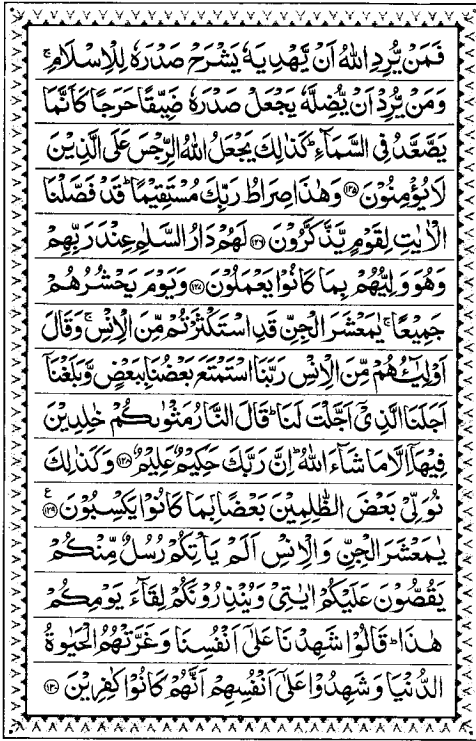 فَمَنْ يُّرِدِ اللّٰهُ اَنْ يَّهْدِيَهٗ يَشْرَحْ صَدْرَهٗ لِلْاِسْلَامِ ۚ
وَمَنْ يُّرِدْ اَنْ يُّضِلَّهٗ يَجْعَلْ صَدْرَهٗ ضَيِّقًا حَرَجًا كَاَنَّمَا
يَصَّعَّدُ فِى السَّمَآءِ ؕ كَذٰلِكَ يَجْعَلُ اللّٰهُ الرِّجْسَ عَلَى الَّذِيْنَ
لَا يُؤْمِنُوْنَ ﴿۱۲۵﴾ وَهٰذَا صِرَاطُ رَبِّكَ مُسْتَقِيْمًا ؕ قَدْ فَصَّلْنَا
الْاٰيٰتِ لِقَوْمٍ يَّذَّكَّرُوْنَ ﴿۱۲۶﴾ لَهُمْ دَارُ السَّلٰمِ عِنْدَ رَبِّهِمْ
وَهُوَ وَلِيُّهُمْ بِمَا كَانُوْا يَعْمَلُوْنَ ﴿۱۲۷﴾ وَيَوْمَ يَحْشُرُهُمْ
جَمِيْعًا ۚ يٰمَعْشَرَ الْجِنِّ قَدِ اسْتَكْثَرْتُمْ مِّنَ الْاِنْسِ ۚ وَقَالَ
اَوْلِيٰٓـُٔهُمْ مِّنَ الْاِنْسِ رَبَّنَا اسْتَمْتَعَ بَعْضُنَا بِبَعْضٍ وَّبَلَغْنَاۤ
اَجَلَنَا الَّذِىْۤ اَجَّلْتَ لَنَا ؕ قَالَ النَّارُ مَثْوٰىكُمْ خٰلِدِيْنَ
فِيْهَاۤ اِلَّا مَا شَآءَ اللّٰهُ ؕ اِنَّ رَبَّكَ حَكِيْمٌ عَلِيْمٌ ﴿۱۲۸﴾ وَكَذٰلِكَ
نُوَلِّىْ بَعْضَ الظّٰلِمِيْنَ بَعْضًۢا بِمَا كَانُوْا يَكْسِبُوْنَ ﴿۱۲۹﴾ ع
يٰمَعْشَرَ الْجِنِّ وَالْاِنْسِ اَلَمْ يَاْتِكُمْ رُسُلٌ مِّنْكُمْ
يَقُصُّوْنَ عَلَيْكُمْ اٰيٰتِىْ وَيُنْذِرُوْنَكُمْ لِقَآءَ يَوْمِكُمْ
هٰذَا ؕ قَالُوْا شَهِدْنَا عَلٰٓى اَنْفُسِنَا وَغَرَّتْهُمُ الْحَيٰوةُ
الدُّنْيَا وَشَهِدُوْا عَلٰٓى اَنْفُسِهِمْ اَنَّهُمْ كَانُوْا كٰفِرِيْنَ ﴿۱۳۰﴾